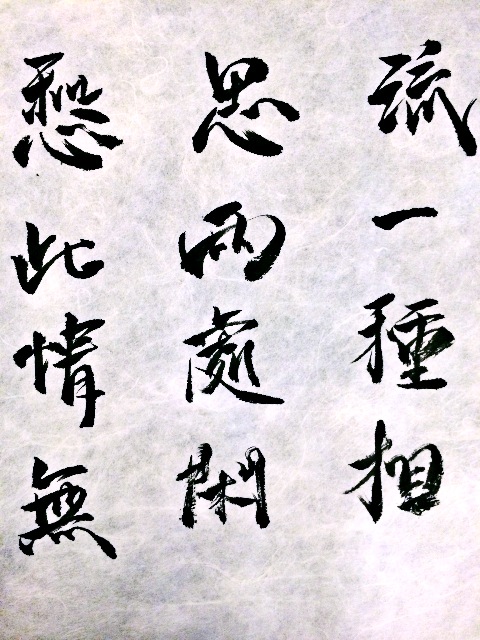 流一種相
思兩處閑
愁此情無